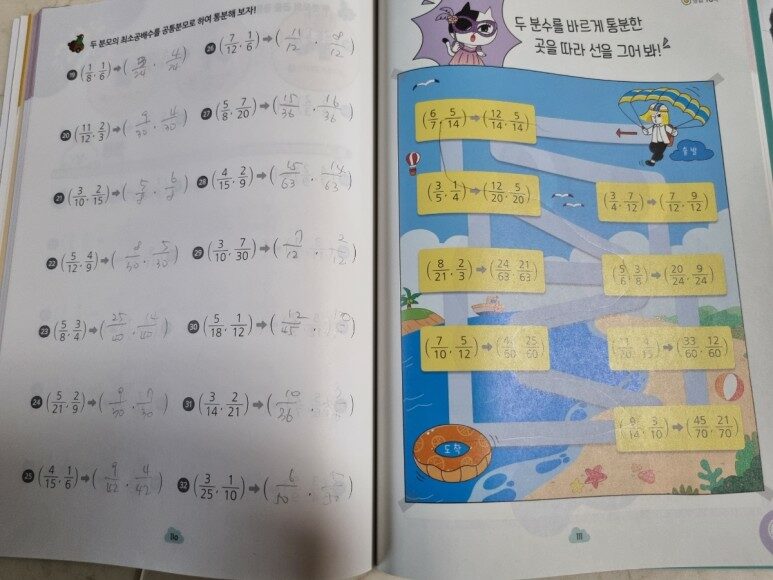 두 분모의 최소공배수를 공통분모로 하여 통분해 보자!
19 (1/8, 1/6) ➡ (
20 (11/12, 2/3) ➡ (9/30, 4/30)
21 (3/10, 2/15) ➡ (
22 (5/12, 4/9) ➡ (8/30, 5/30)
23 (5/8, 3/4) ➡ (25/40, 14/40)
24 (5/21, 2/9) ➡ (9/30, 7/30)
25 (4/15, 1/6) ➡ (9/42, 4/42)
26 (7/12, 1/6) ➡ (11/12, 9/12)
27 (5/8, 7/20) ➡ (15/36, 16/36)
28 (4/15, 2/9) ➡ (15/63, 14/63)
29 (3/10, 7/30) ➡ (7/12, 2/12)
30 (5/18, 1/12) ➡ (12/45,
31 (3/14, 2/21) ➡ (10/36,
32 (3/25, 1/10) ➡ (6/50, 5/50)
110
두 분수를 바르게 통분한
곳을 따라 선을 그어 봐!
(6/7, 5/14) ➡ (12/14, 5/14)
출발
(3/5, 1/4) ➡ (12/20, 5/20)
(3/4, 7/12) ➡ (7/12, 9/12)
(8/21, 2/3) ➡ (24/63, 21/63)
(5/6, 3/8) ➡ (20/24, 9/24)
(7/10, 5/12) ➡ (42/60, 25/60)
(11/20, 4/15) ➡ (33/60, 12/60)
(9/14, 3/10) ➡ (45/70, 21/70)
도착
111